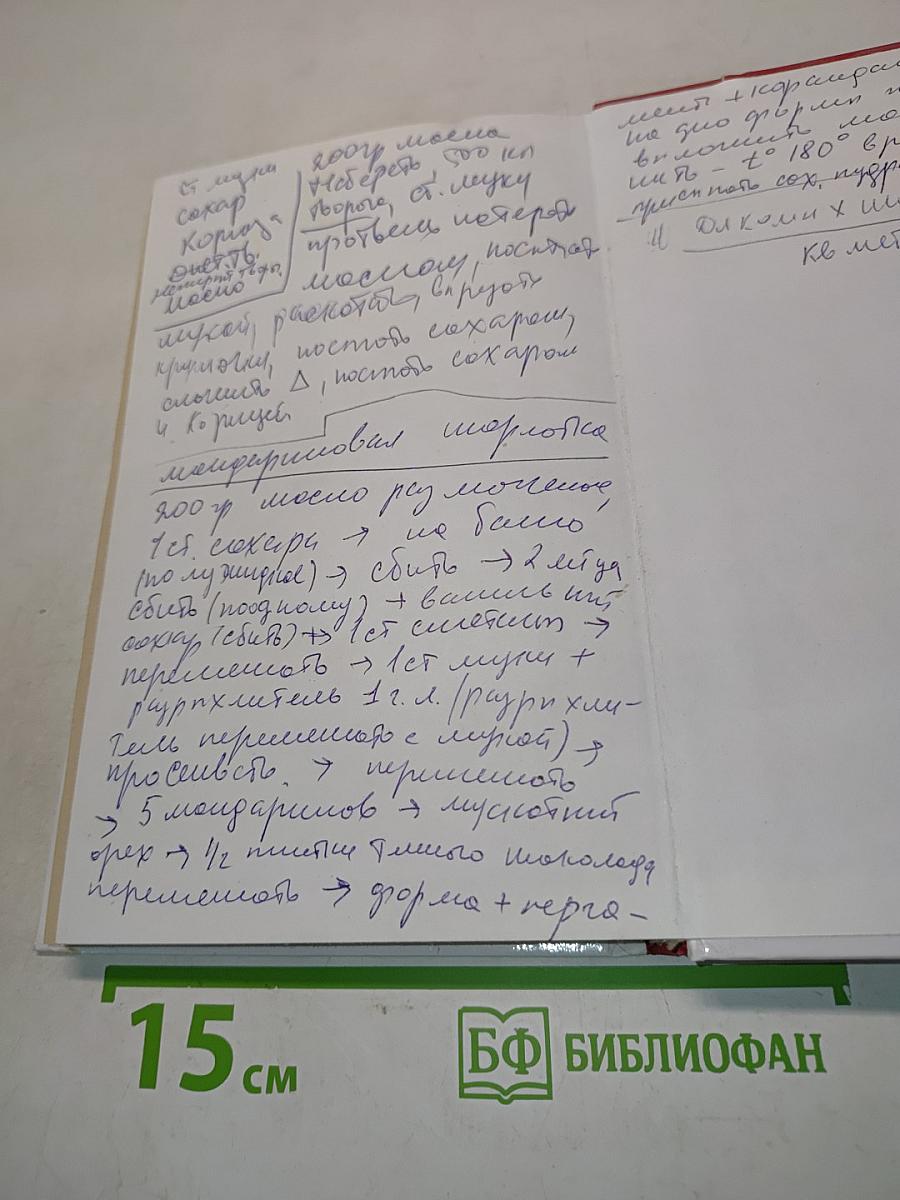 ст муки
сахар
Корица
масло
200гр масла
500
творога, ст. муку
протвень потереть
маслом, посыпать
мукой, раскатать, вырезать
кружочки, посыпать сахаром,
сложить Δ, посыпать сахаром
и Корицей
мандариновая шарлотка
200гр масло размягченое,
1ст. сахара → на баню
(полужидкое) → сбить → 2 яйца
сбить (поодному) + ванильный
сахар (сбить) → 1ст сметаны →
перемешать → 1ст муки +
разрыхлитель 1 г.л. (разрыхли-
тель перемешать с мукой) →
просеивать → перемешать
→ 5 мандаринов → мускатный
орех → 1/2 плитки темного шоколада
перемешать → форма + перга-
мент +
на дно формы
выложить
- t° 180°
присыпать сах. пудр
кв мет
15 см
БФ БИБЛИОФАН